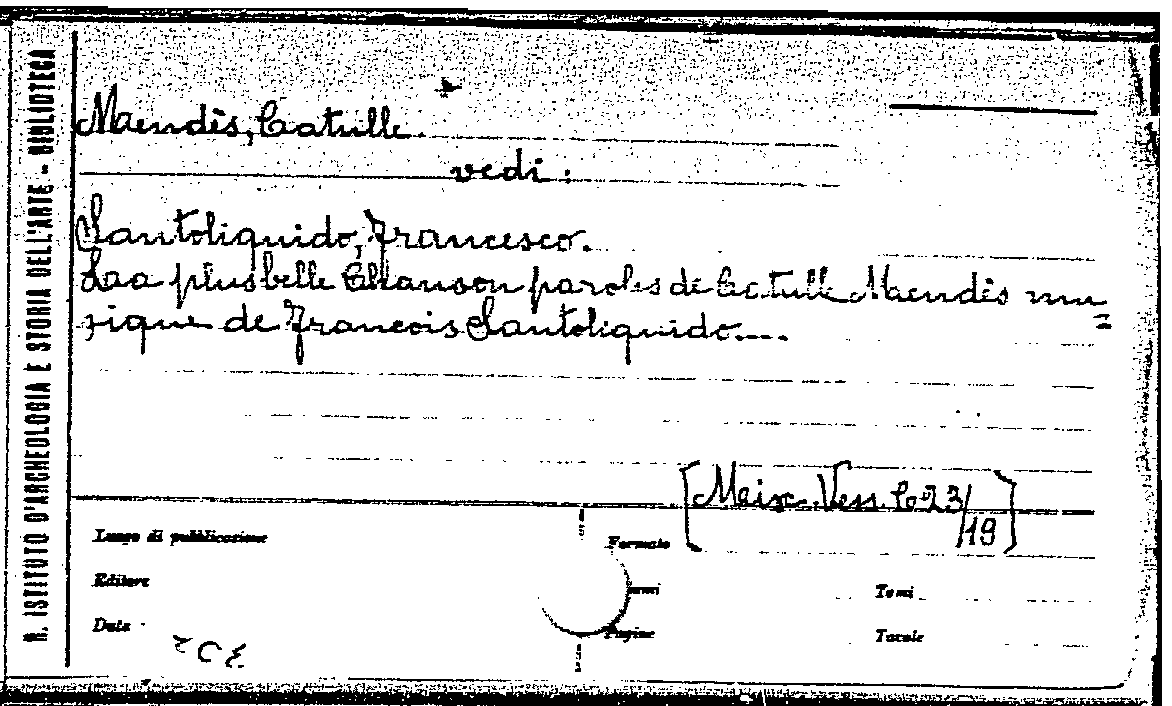 R. ISTITUTO D'ARCHEOLOGIA E STORIA DELL'ARTE - BIBLIOTECA
Maendès, Catulle.
vedi :
Santoliquido, Francesco.
Laa plus belle Chanson paroles de Catulle Maendès mu=
sique de Francois Santoliquido....
[Misc. Vess. C. 23/19]
Luogo di pubblicazione
Formato
Editore
Tomi
Data
Pagine
Tavole